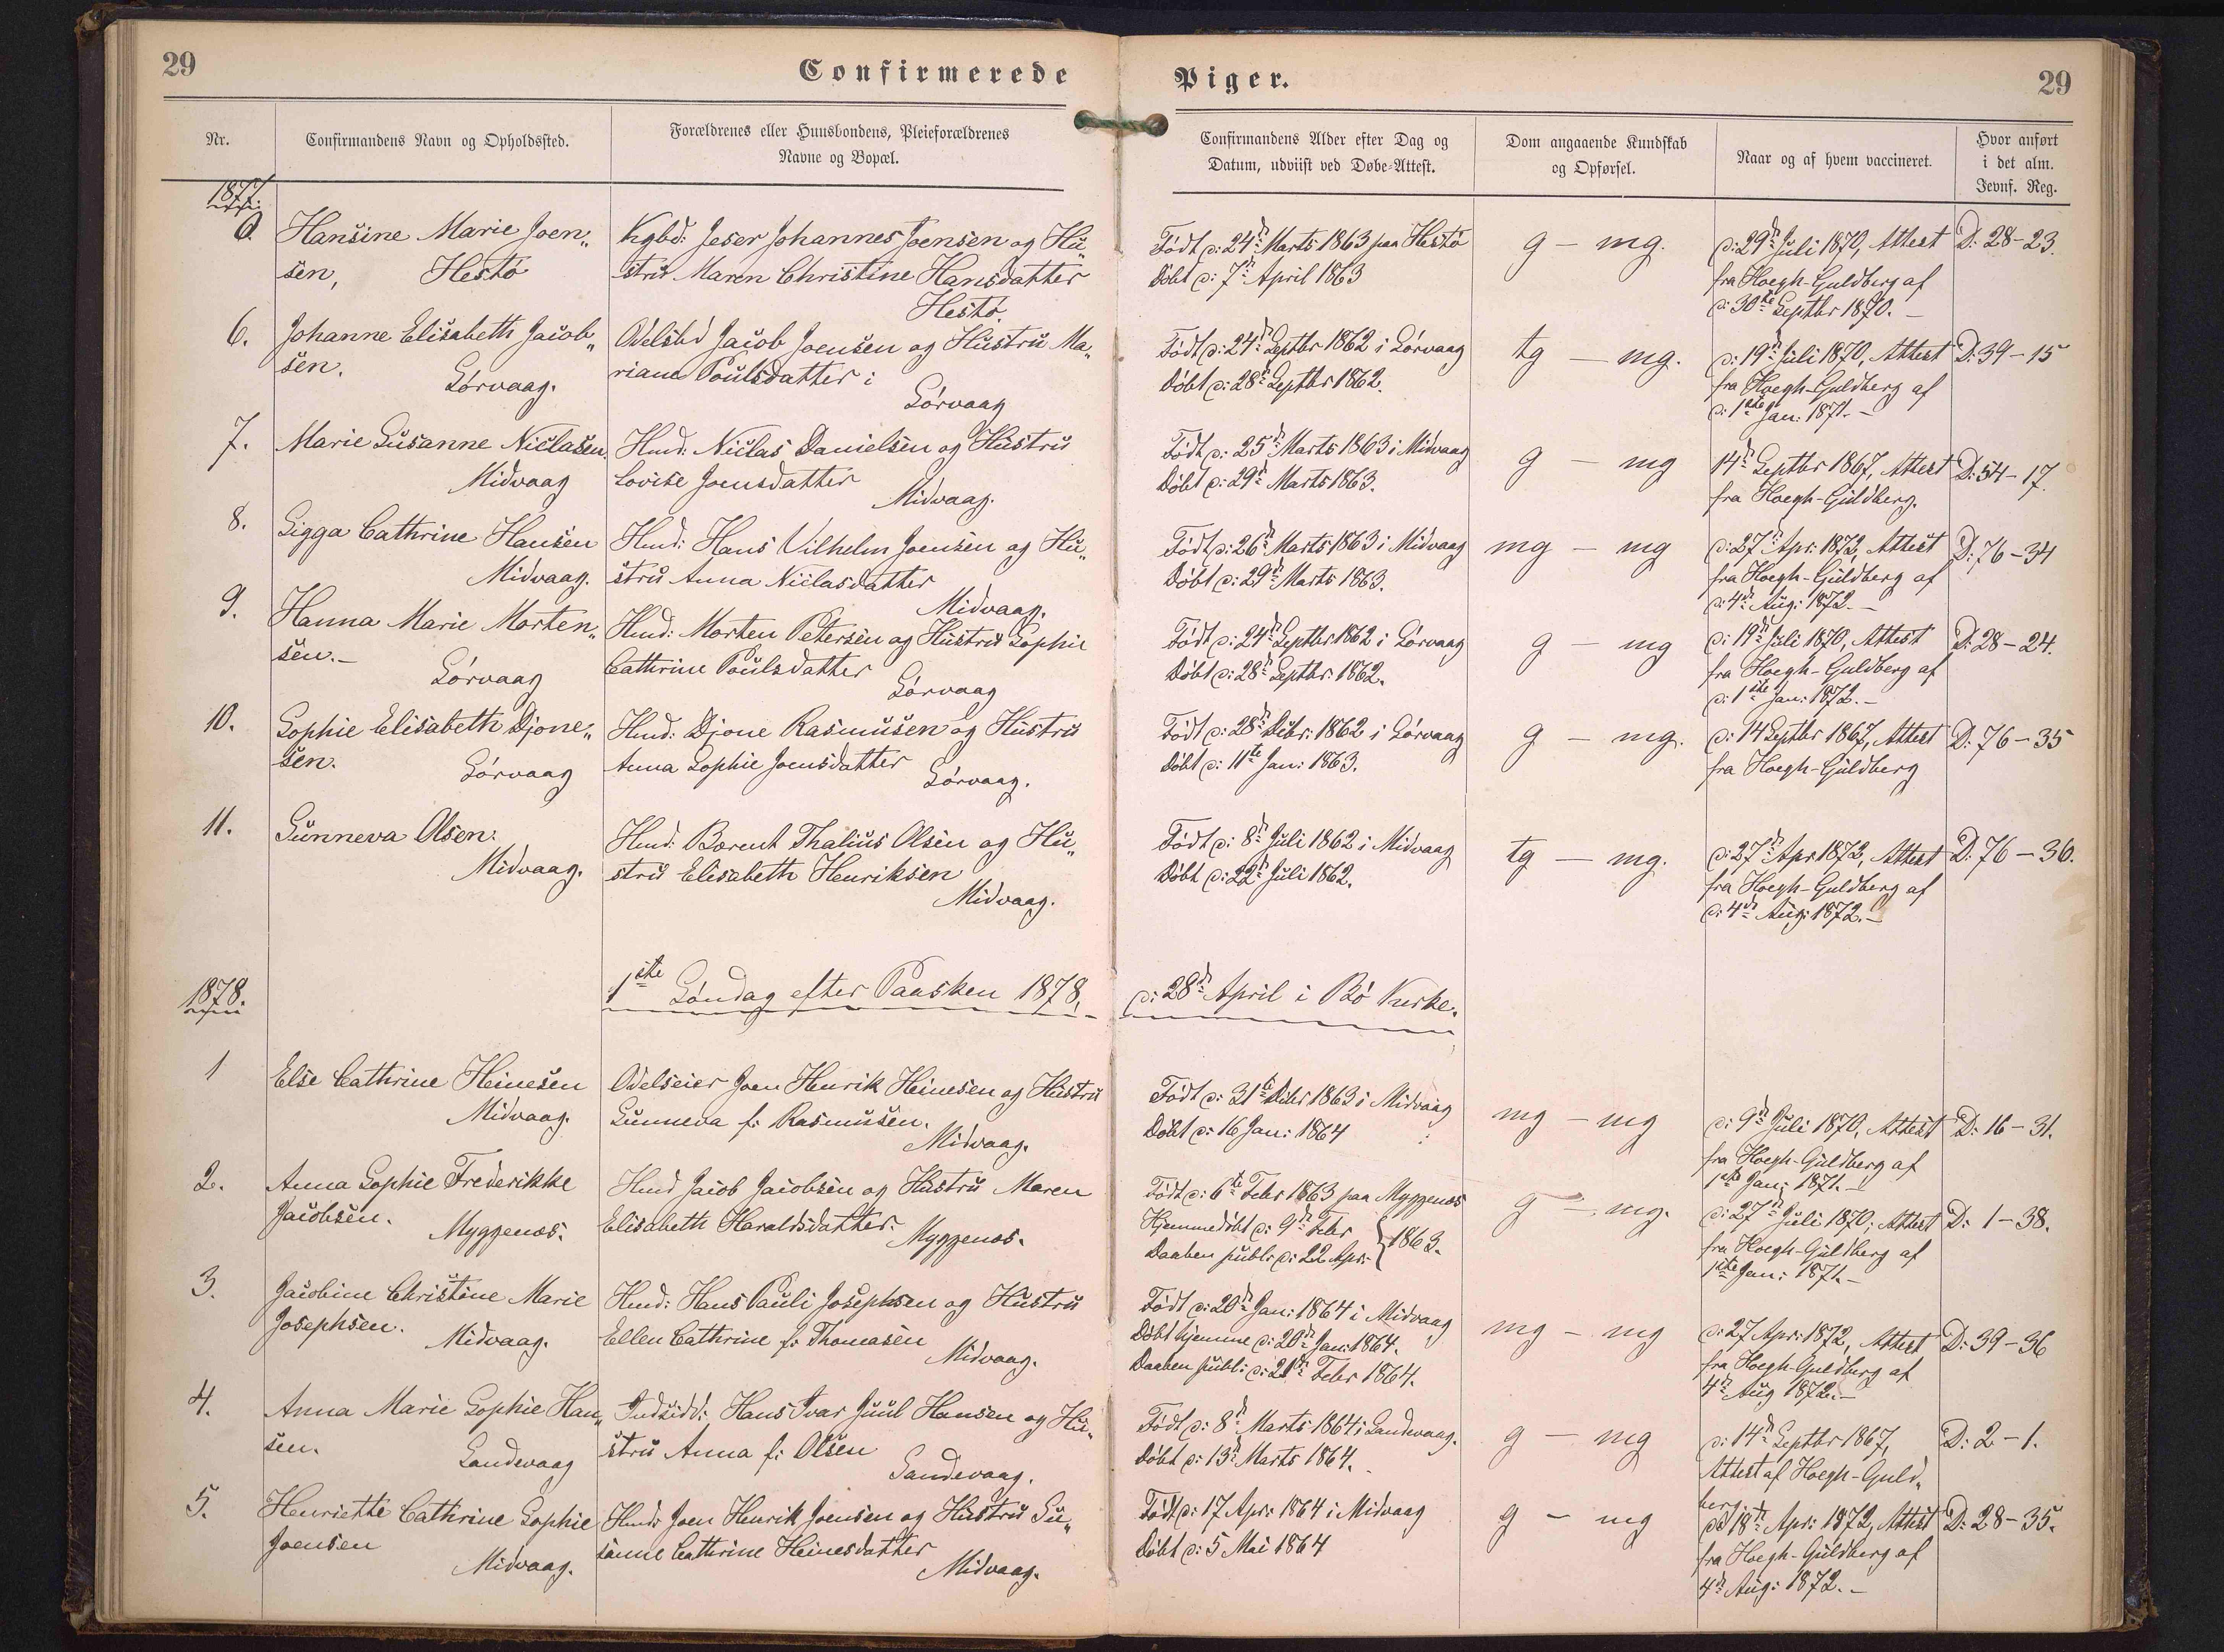 29
Confirmerede Piger.
29
Nr.
Confirmandens Navn og Opholdssted.
Forældrenes eller Huusbondens, Pleieforældrenes
Navne og Bopæl.
Confirmandens Alder efter Dag og
Datum, udviist ved Døbe-Attest.
Dom angaaende Kundskab
og Opførsel.
Naar og af hvem vaccineret.
Hvor anført
i det alm.
Jevnf. Reg.
1877.
Hansine Marie Joen„
sen, Hestö
Kgbd: Jeser Johannes Joensen og Hu„
stru Maren Christine Hansdatter
Hestö.
Födt d: 24d Marts 1863 paa Hestö
Döbt d: 7d April 1863
g — mg.
d: 29d Juli 1870, Attest
fra Hoegh-Guldberg af
d: 30te Septbr 1870. —
D: 28-23.
6.
Johanne Elisabeth Jacob„
sen.
Sörvaag.
Odelsbd Jacob Joensen og Hustru Ma„
riane Poulsdatter i
Sörvaag
Födt d: 24d Septbr 1862 i Sörvaag
Döbt d: 28d Septbr 1862.
tg — mg.
d: 19d Juli 1870, Attest
fra Hoegh-Guldberg af
d: 1ste Jan: 1871. —
D: 39-15
7.
Marie Susanne Niclasen.
Midvaag
Hmd: Niclas Danielsen og Hustru
Lovise Joensdatter
Midvaag.
Födt d: 25d Marts 1863 i Midvaag
Döbt d: 29d Marts 1863.
g — mg
14d Septbr 1867, Attest
fra Hoegh-Guldberg.
D: 54-17.
8.
Sigga Cathrine Hansen
Midvaag.
Hmd: Hans Vilhelm Joensen og Hu„
stru Anna Niclasdatter
Midvaag.
Födt d: 26d Marts 1863 i Midvaag
Döbt d: 29d Marts 1863.
mg — mg
d: 27d Apr: 1872, Attest
fra Hoegh-Guldberg af
d: 4d Aug: 1872. —
D: 76-34
9.
Hanna Marie Morten„
sen. —
Sörvaag
Hmd: Morten Petersen og Hustru Sophie
Cathrine Poulsdatter
Sörvaag
Födt d: 24d Septbr 1862 i Sörvaag
Döbt d: 28d Septbr: 1862.
g — mg
d: 19d Juli 1870, Attest
fra Hoegh-Guldberg af
d: 1ste Jan: 1872. —
D: 28-24.
10.
Sophie Elisabeth Djone„
sen.
Sörvaag
Hmd: Djone Rasmussen og Hustru
Anna Sophie Joensdatter
Sörvaag.
Födt d: 28d Decbr: 1862 i Sörvaag
Döbt d: 11te Jan: 1863.
g — mg.
d: 14 Septbr 1867, Attest
fra Hoegh-Guldberg
D: 76-35
11.
Sunneva Olsen.
Midvaag.
Hmd: Bærent Thalius Olsen og Hu„
stru Elisabeth Henriksen
Midvaag.
Födt d: 8d Juli 1862 i Midvaag
Döbt d: 22d Juli 1862.
tg — mg.
d: 27d Apr 1872, Attest
fra Hoegh-Guldberg af
d: 4d Aug: 1872. —
D: 76-36.
1878.
1ste Söndag efter Paasken 1878, d: 28d April i Bö Kirke.
1
Else Cathrine Heinesen
Midvaag.
Odelseier Joen Henrik Heinesen og Hustru
Sunneva f: Rasmussen.
Midvaag.
Födt d: 31te Decbr 1863 i Midvaag
Döbt d: 16 Jan: 1864
mg — mg
d: 9d Juli 1870, Attest
fra Hoegh-Guldberg af
1ste Jan: 1871. —
D: 16-31.
2.
Anna Sophie Frederikke
Jacobsen.
Myggenæs.
Hmd Jacob Jacobsen og Hustru Maren
Elisabeth Haraldsdatter.
Myggenæs.
Födt d: 6te Febr 1863 paa Myggenæs
Hjemmedöbt d: 9d Febr
Daaben publ: d: 22 Apr: } 1863.
g — mg.
d: 27d Juli 1870, Attest
fra Hoegh-Guldberg af
1ste Jan: 1871. —
D: 1-38.
3.
Jacobine Christine Marie
Josephsen.
Midvaag.
Hmd: Hans Pauli Josephsen og Hustru
Ellen Cathrine f: Thomasen
Midvaag.
Födt d: 20d Jan: 1864 i Midvaag
Döbt hjemme d: 20d Jan: 1864.
Daaben publ: d: 21d Febr 1864.
mg — mg
d: 27 Apr: 1872, Attest
fra Hoegh Guldberg af
4d Aug 1872. —
D: 39-36
4.
Anna Marie Sophie Han„
sen.
Sandevaag
Indsidd: Hans Ivar Juul Hansen og Hu„
stru Anna f: Olsen
Sandevaag.
Födt d: 8d Marts 1864 i Sandevaag.
Döbt d: 13d Marts 1864.
g — mg
d: 14d Septbr 1867,
Attest af Hoegh-Guld„
berg.
D: 2-1.
5.
Henriette Cathrine Sophie
Joensen
Midvaag.
Hmd: Joen Henrik Joensen og Hustru Su„
sanne Cathrine Heinesdatter
Midvaag.
Födt d: 17 Apr: 1864 i Midvaag
Döbt d: 5 Mai 1864
g — mg
d: 18d Apr: 1872, Attest
fra Hoegh-Guldberg af
4d Aug: 1872. —
D: 28-35.